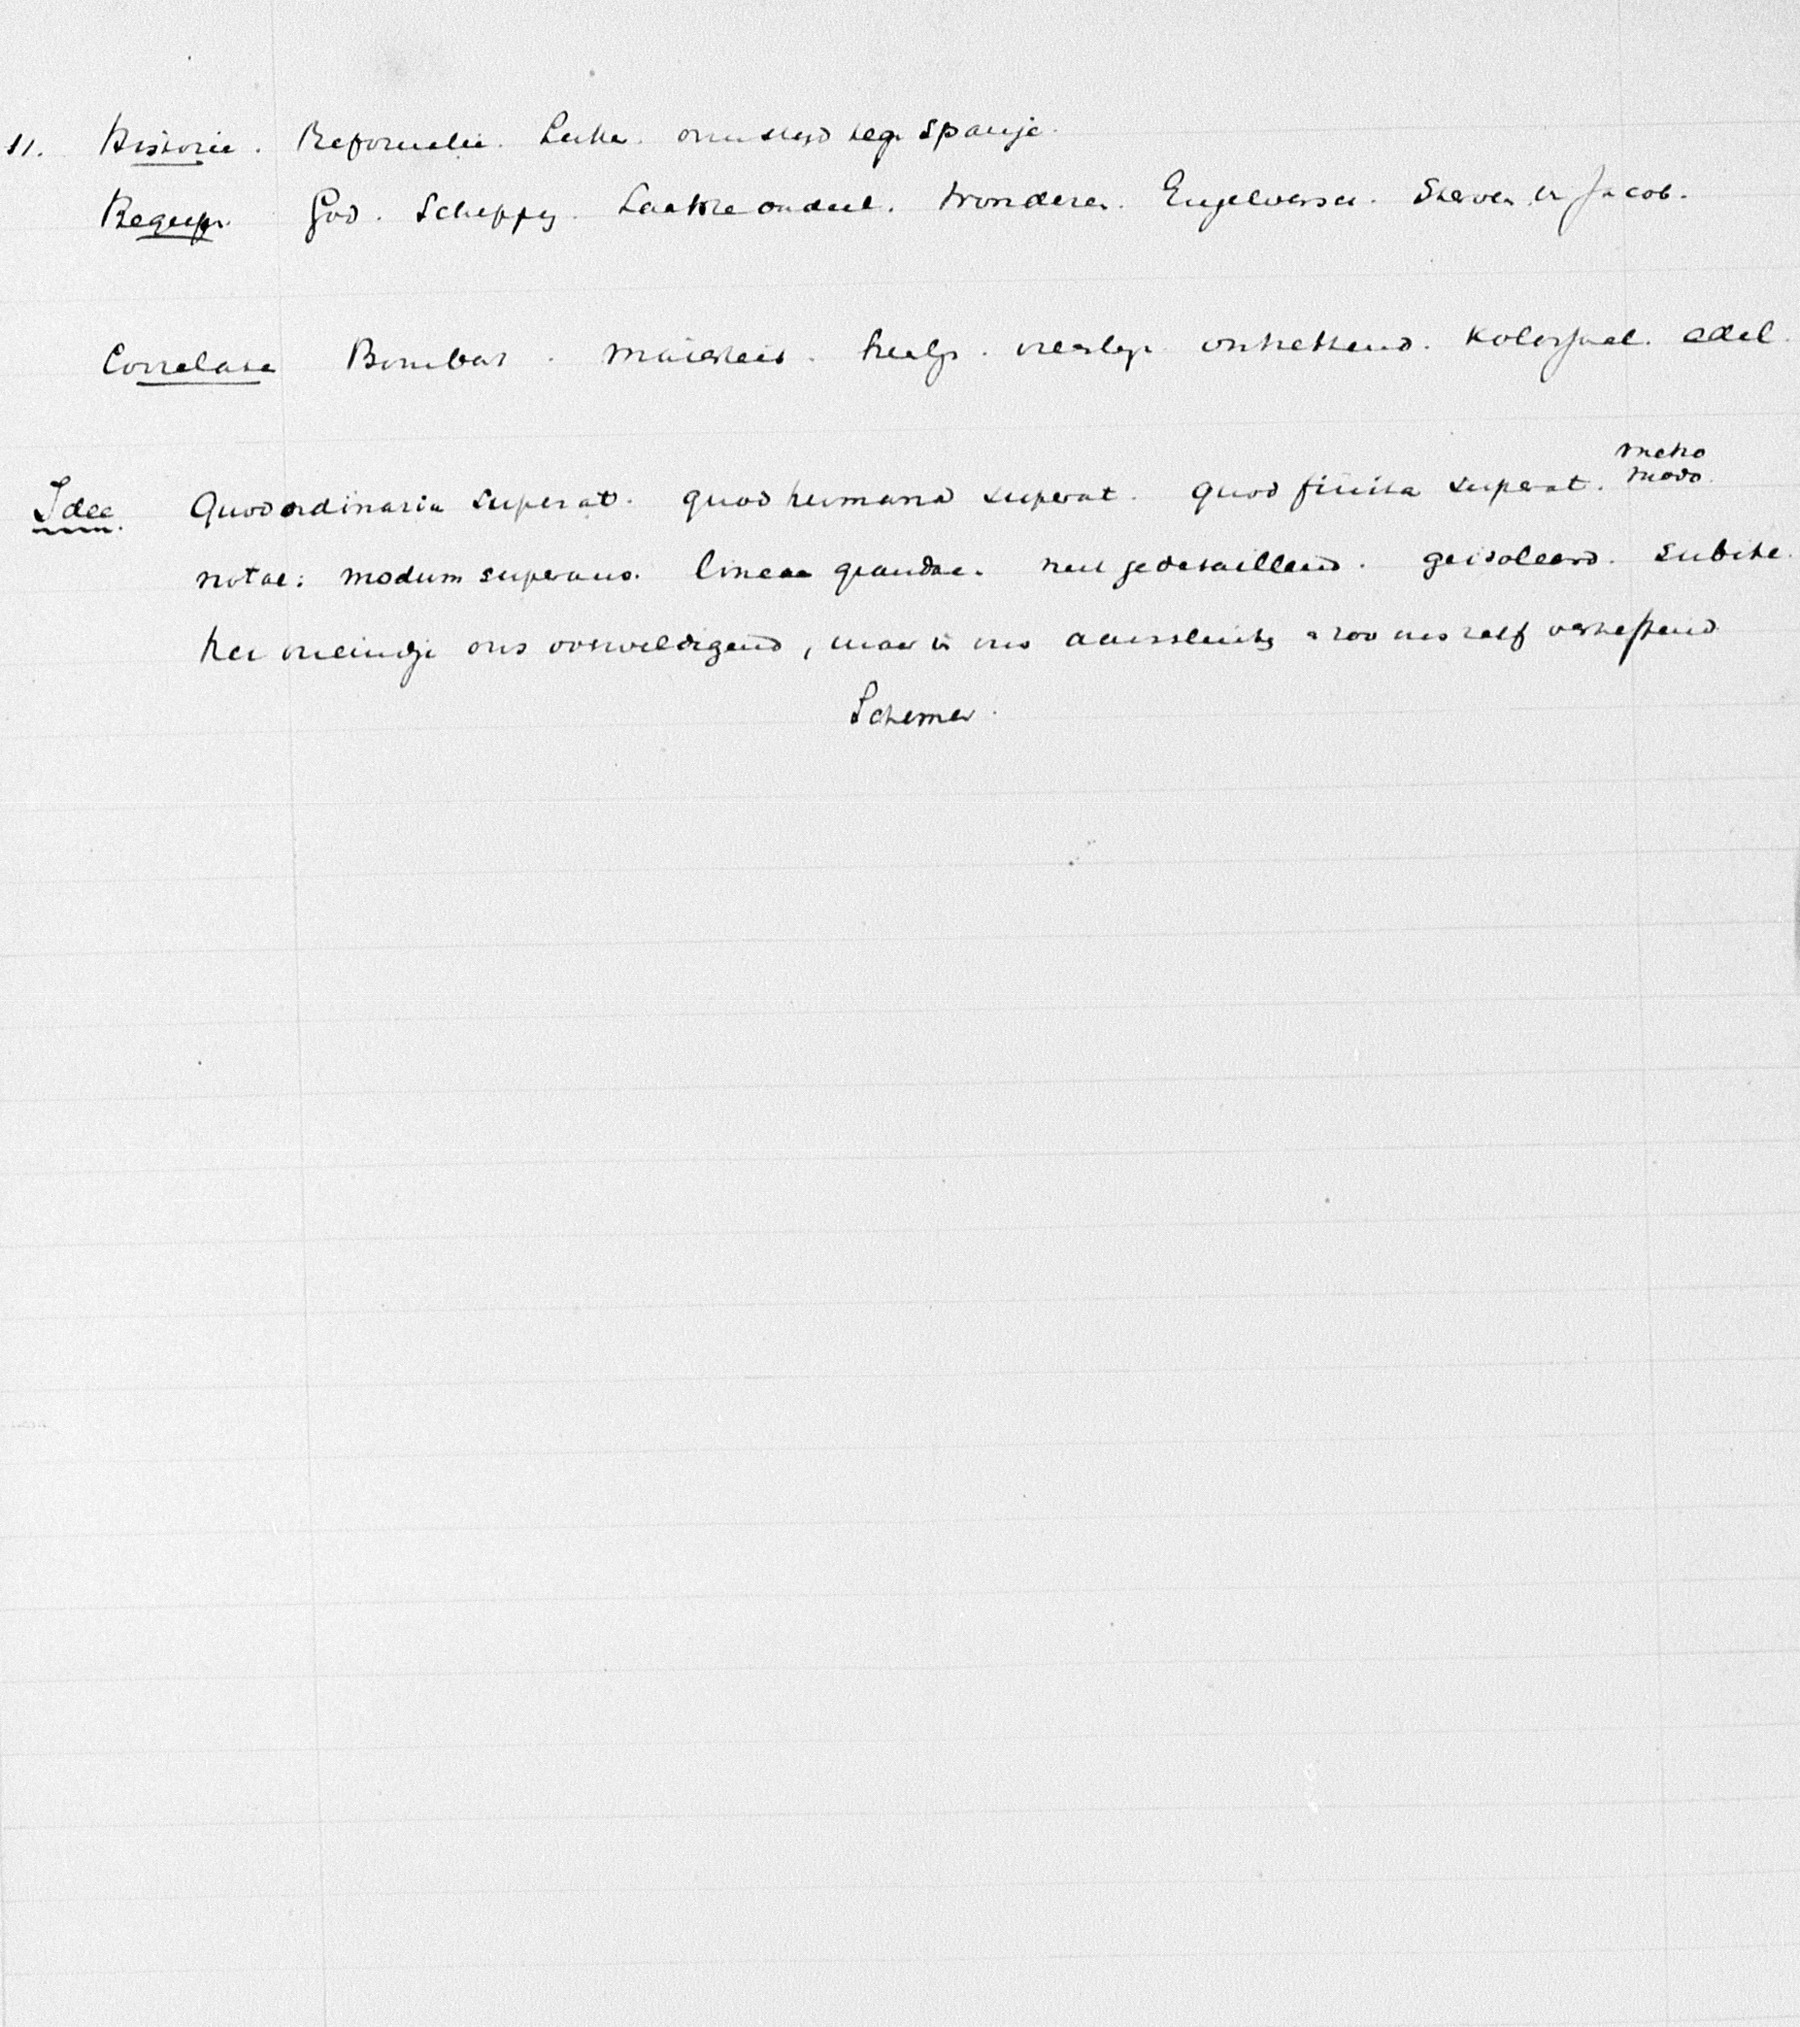 11. Historie. Reformatie. Luther. onzen strijd teg. Spanje.
Begripp. God. Schepping. Laatste oordeel. Wonderen. Engelverse. Sterven v. Jacob.
Correlata Bombast. Majesteit. heilig. vreeslijk. ontzettend. Kolossaal. edel.
meho
Idee. Quod ordinaria superat. quod humana superat. quod finita superat. modo.
notae: modum superans. lineae grandae. niet gedetailleerd. geisoleerd. subite.
het oneindige ons overweldigend, maar in ons aansluitg zoo ons zelf verheffend
Schemer.